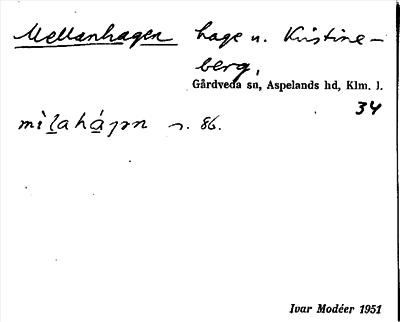 Mellanhagen hage u. Kristine-
berg,
Gårdveda sn, Aspelands hd, Klm. l.
34
mìl̲ahá̲ɡən s. 86.
Ivar Modéer 1951